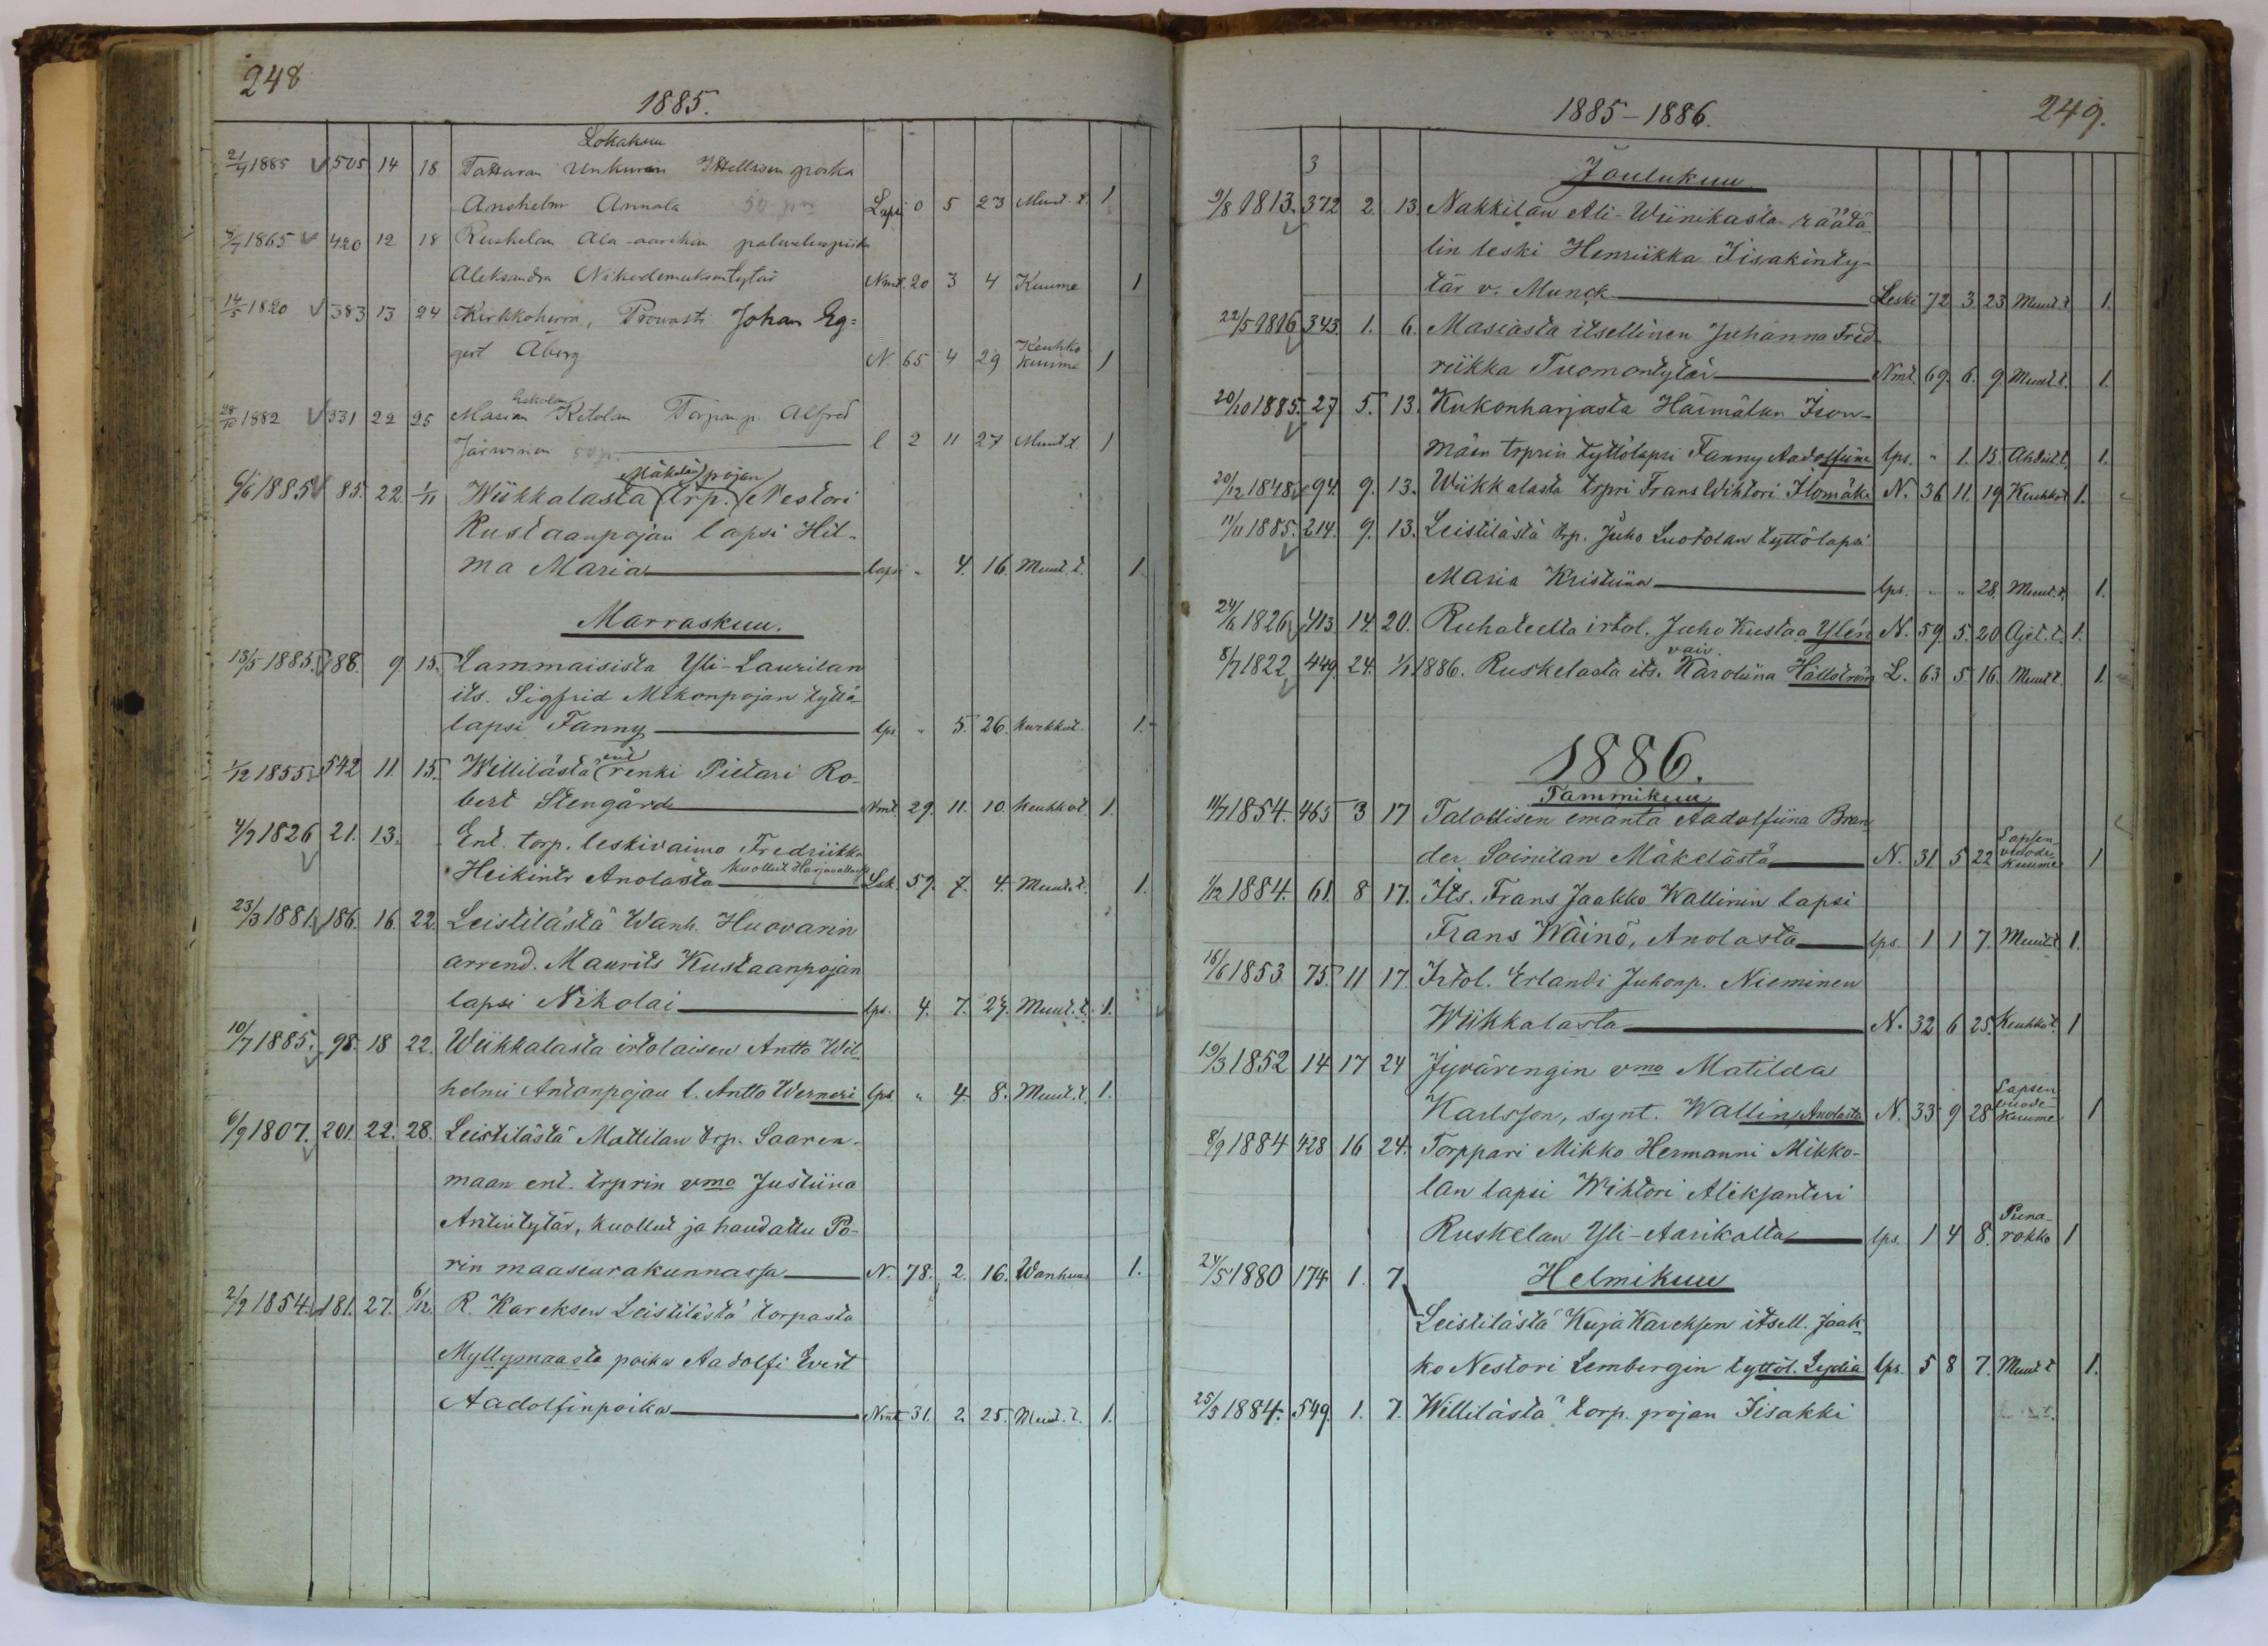 248
1885.
Lokakuu
21/4 1885 505 14 18 Tattaran Unkurin poika
Anshelm Annala Lapsi 0 5 23 Muut. t. 1
5/7 1865 420 12 18 Ruskelan Ala-aarikan palveluspiika
Aleksandra Nikodemuksentytär Nmt. 20 3 4 Kuume 1
14/5 1820 383 13 24 Kirkkoherra, Provasti Johan Eg=
gert Åberg N. 65 4 29 Keuhko kuume 1
28/10 1882 331 22 25 Masian Ketolan Torpan p. Alfred
Järvinen l 2 11 27 Muut t. 1
Mäkelän pojan
6/6 1885 85. 22. 1/11 Wiikkalasta (trp.) Nestori
Kustaanpojan lapsi Hil-
ma Maria lapsi " 4. 16. Muut. t. 1.
Marraskuu.
13/5 1885. 188. 9 15. Lammaisista Yli-Laurilan
its. Sigfrid Mikonpojan tyttö-
lapsi Fanny lps " 5. 26. Kurkkut. 1.
1/12 1855 542 11. 15. Willilästä ent renki Pietari Ro-
bert Stengård Nmt. 29. 11. 10. Keuhkot. 1.
4/7 1826 21. 13. Ent. torp. leskivaimo Fredriikka
Heikintr Anolasta kuollut Harjavallassa Lsk. 59. 7. 4. Muut. t. 1.
23/3 1881. 186. 16. 22. Leistilästä Wanh. Huovarin
arrend. Maurits Kustaanpojan
lapsi Nikolai lps. 4. 7. 24. Muut. t. 1.
10/7 1885. 98. 18 22. Wiikkalasta irtolaisen Antto Wil-
helmi Antonpojan l. Antto Werneri lps. " 4. 8. Muut. t. 1.
6/9 1807. 201. 22. 28. Leistilästä Mattilan trp. Saaren-
maan ent. trprin vmo Justiina
Antintytär, kuollut ja haudattu Po-
rin maaseurakunnassa N. 78. 2. 16. Wanhuus 1.
2/9 1854. 181. 27. 6/12. R. Kareksen Leistilästä torpasta
Myllymaasta poika Aadolfi Evert
Aadolfinpoika Nmt 31. 2. 25. Muut. t. 1.
1885-1886. 249.
3
Joulukuu
9/8 1813. 372 2. 13. Nakkilan Ali-Wiinikasta räätä-
lin leski Henriikka Iisakinty-
tär v. Munck Leski 72 3. 23 Muut. t 1.
22/5 1816 343. 1. 6. Masiasta itsellinen Juhanna Fred-
riikka Tuomontytär Nmt. 69. 6. 9. Muut t. 1.
20/10 1885. 27 5. 13. Kukonharjasta Haimälän Ison-
mäen trprin tyttölapsi Fanny Aadolfiina lps. " 1. 15. 1.
20/12 1848. 94. 9. 13. Wiikkalasta trpri Frans Wihtori Ilomäki N. 36 11. 19. Keuhkot 1.
11/11 1885. 214. 9. 13. Leistilästä trp. Juho Luotolan tyttölapsi
Maria Kristiina lps. " " 28. Muut. t. 1.
24/6 1826 413 14. 20. Ruhateelta irtol. Juho Kustaa Ylén N. 59. 5. 20 Ajet. t. 1.
vaiv.
8/7 1822 449. 24. 1/1 1886. Ruskelasta its. Karoliina Hällström L. 63 5 16. Muut t. 1.
1886.
Tammikuu
11/7 1854. 465 3 17 Talollisen emäntä Aadolfiina Bran-
der Soinilan Mäkelästä N. 31 5 22 Lapsen-vuode-kuume 1
1/12 1884. 61. 8 17. Its. Frans Jaakko Wallinin lapsi
Frans Wäinö, Anolasta lps. 1 1 7. Muut t 1.
16/6 1853 75. 11 17 Irtol. Erlandi Juhonp. Nieminen
Wiikkalasta N. 32 6 25. Keuhkot. 1
19/3 1852 14 17 24 Jyvärengin vmo Matilda
Karlsson, synt. Wallin, Anolasta N. 33 9 28 Lapsen vuode-kuume 1
8/9 1884 428 16 24. Torppari Mikko Hermanni Mikko-
lan lapsi Wihtori Aleksanteri
Ruskelan Yli-Aarikalta lps. 1 4 8. Puna-rokko 1
24/5 1880 174. 1. 7. Helmikuu
Leistilästä Kuja Kareksen itsell. Jaak-
ko Nestori Lembergin tyttöl. Lydia lps. 5 8 7. Muut t 1.
25/3 1884. 549. 1. 7. Willilästä torp. pojan Iisakki